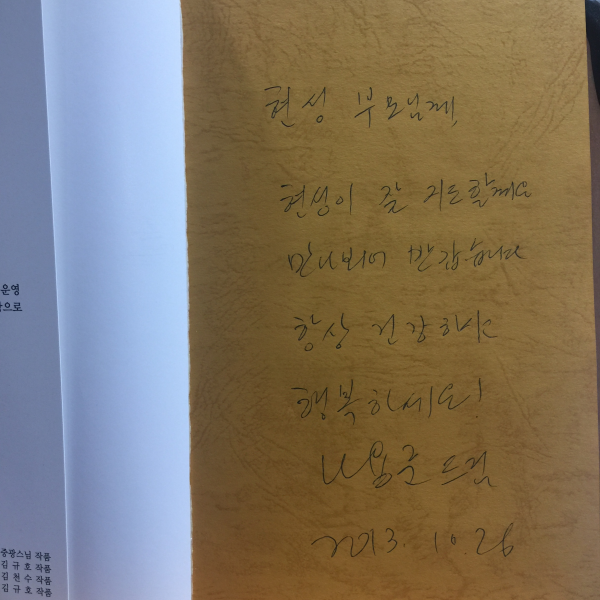 현성 부모님께,
현성이 잘 지도할께요
만나뵈어 반갑습니다
항상 건강하시고
행복하세요!
드림
2013. 10. 26
운영
으로
중광스님 작품
김 규 호 작품
김 천 수 작품
김 규 호 작품